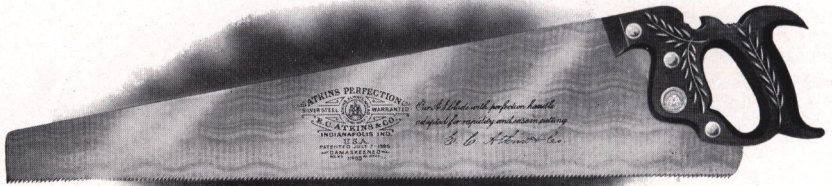 ATKINS PERFECTION
SILVER STEEL WARRANTED
E.C. ATKINS & CO.
INDIANAPOLIS IND.
U.S.A.
DAMASKEENED
Our blade with perfection handle
adapted for rapidity and ease in cutting
E. C. Atkins & Co.